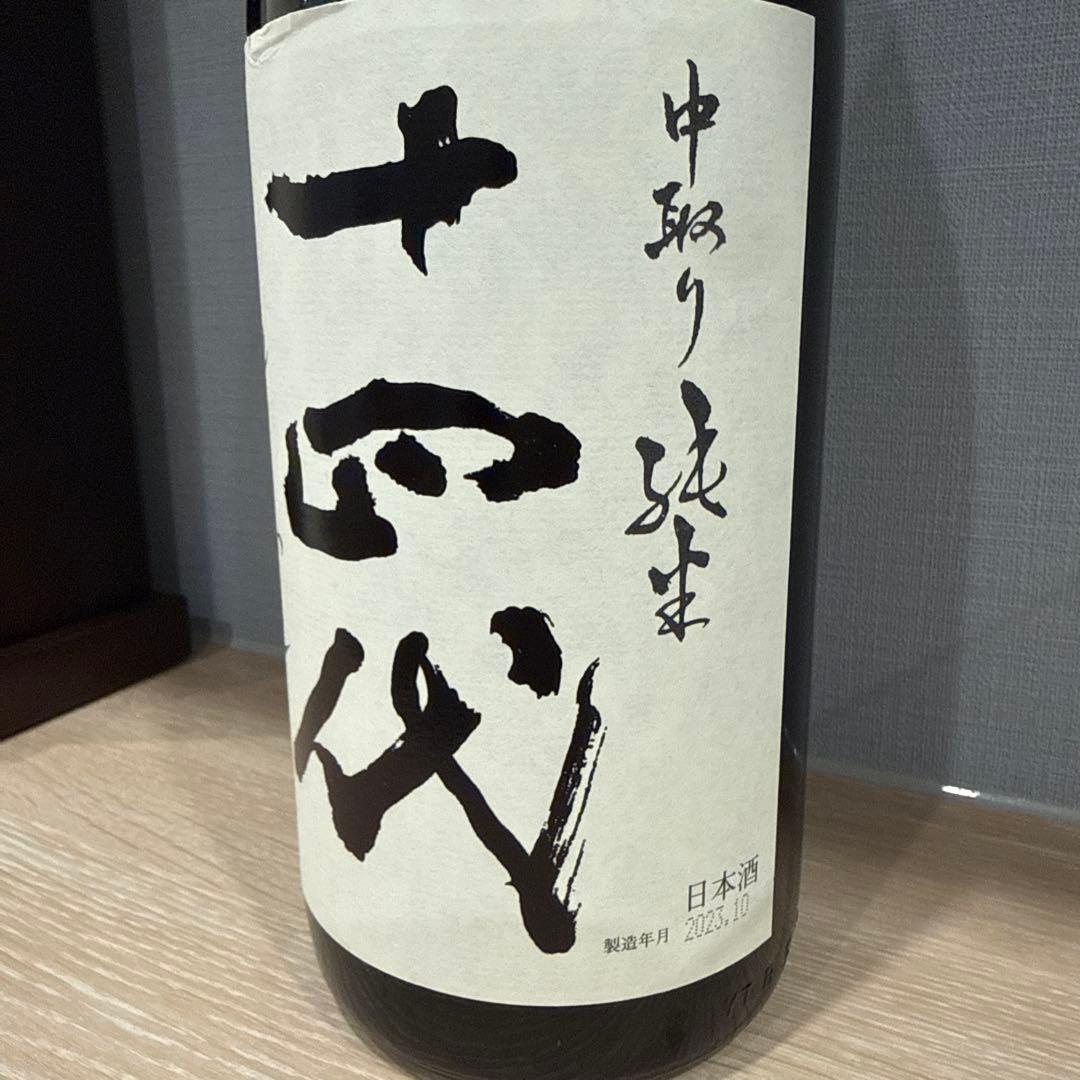 中取り純米
十四代
日本酒
製造年月 2023.10